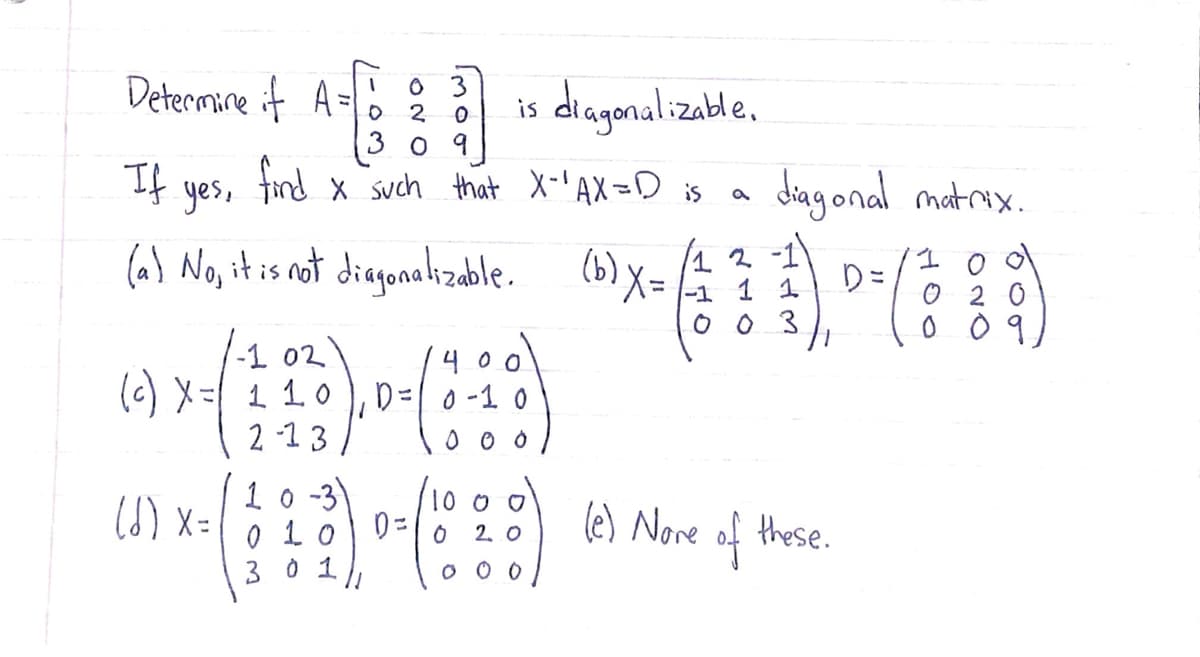 Determine if A = [1 0 3
0 2 0
3 0 9] is diagonalizable.
If yes, find x such that X⁻¹AX = D is a diagonal matrix.
(a) No, it is not diagonalizable. (b) X = (1 2 -1
-1 1 1
0 0 3), D = (1 0 0
0 2 0
0 0 9)
(c) X = (-1 0 2
1 1 0
2 -1 3), D = (4 0 0
0 -1 0
0 0 0)
(d) X = (1 0 -3
0 1 0
3 0 1), D = (10 0 0
0 2 0
0 0 0) (e) None of these.